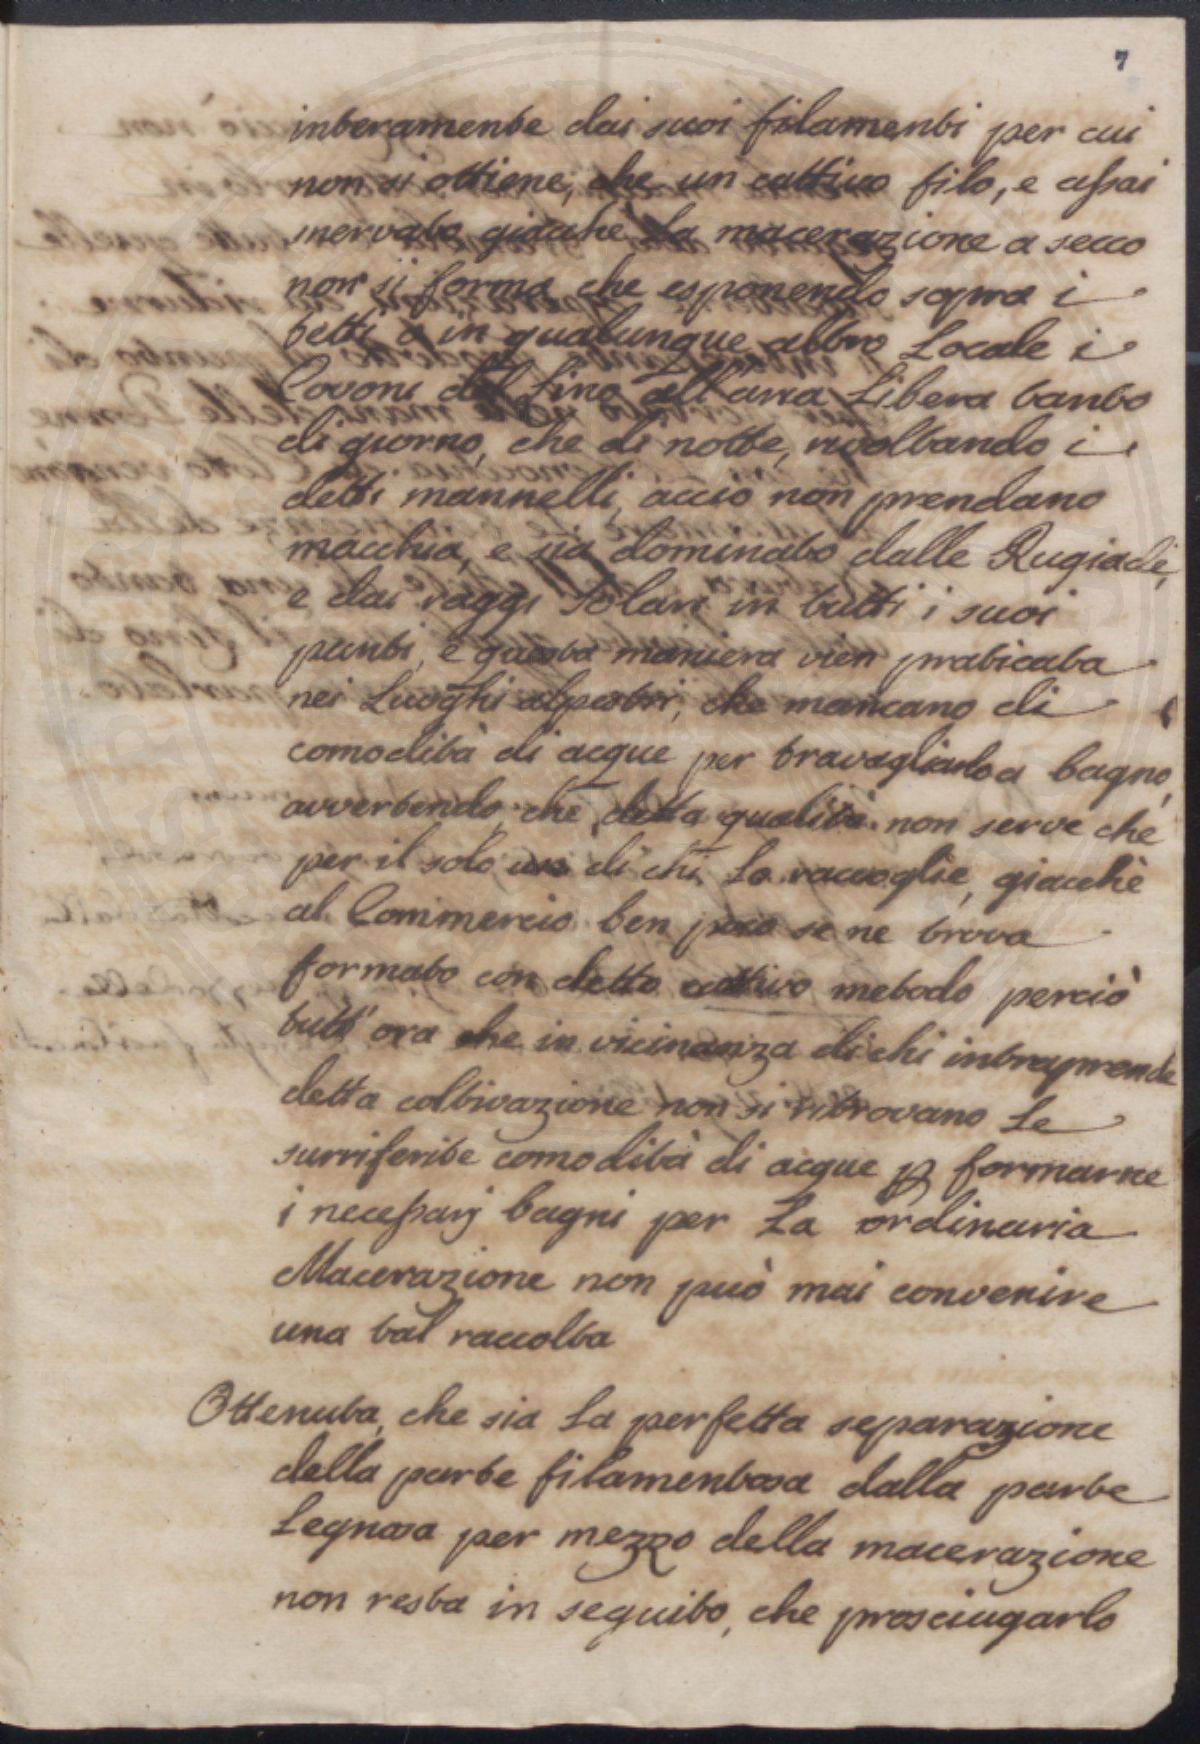 7
interamente dai suoi filamenti per cui
non si ottiene, che un cattivo filo, e assai
snervato giacchè la macerazione a secco
non si forma che esponendo sopra i
tetti o in qualunque altro Locale i
Covoni del Lino all'aria Libera tanto
di giorno, che di notte, rivoltando i
detti mannelli, acciò non prendano
macchia, e sia dominato dalle Rugiade,
e dai raggi Solari in tutti i suoi
punti, e questa maniera vien praticata
nei Luoghi alpestri, che mancano di
comodità di acque per travagliarlo a bagno,
avvertendo, che detta qualità non serve che
per il solo uso di chi La raccoglie, giacchè
al Commercio ben poco se ne trova
formato con detto cattivo metodo perciò
tutt'ora che in vicinanza di chi intreprende
detta coltivazione non si ritrovano Le
surriferite comodità di acque p formarne
i necessarj bagni per La ordinaria
Macerazione non può mai convenire
una tal raccolta
Ottenuta, che sia La perfetta separazione
della parte filamentosa dalla parte
Legnosa per mezzo della macerazione
non resta in seguito, che prosciugarlo